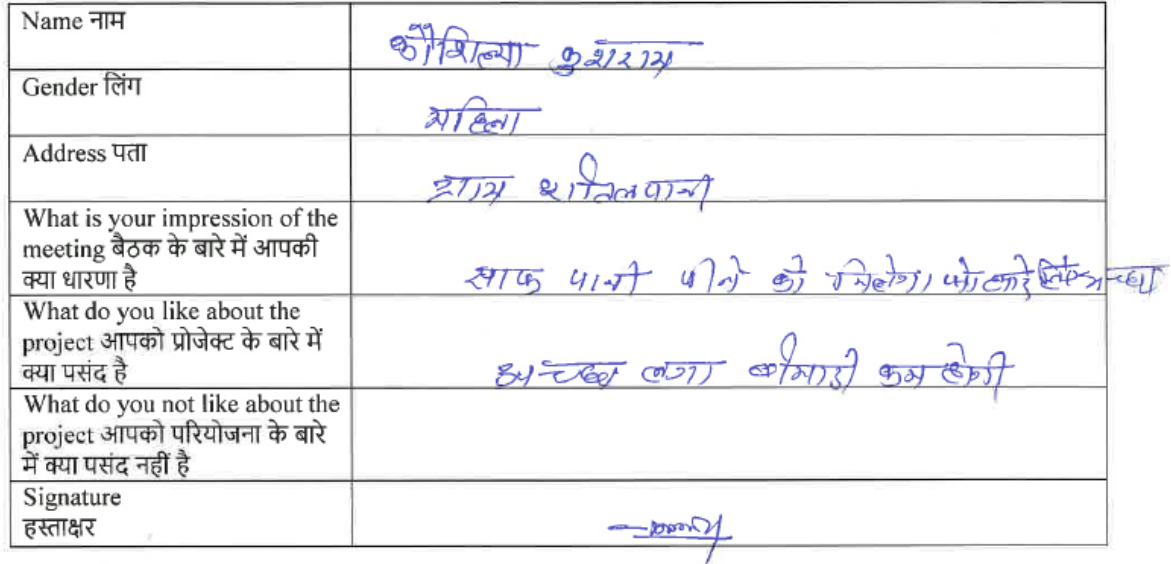 Name नाम
कौशिल्या कुशराम
Gender लिंग
महिला
Address पता
ग्राम शीतलपानी
What is your impression of the
meeting बैठक के बारे में आपकी
क्या धारणा है
साफ पानी पीने को मिलेगा
What do you like about the
project आपको प्रोजेक्ट के बारे में
क्या पसंद है
अच्छा लगा बीमारी कम होगी
What do you not like about the
project आपको परियोजना के बारे
में क्या पसंद नहीं है
Signature
हस्ताक्षर